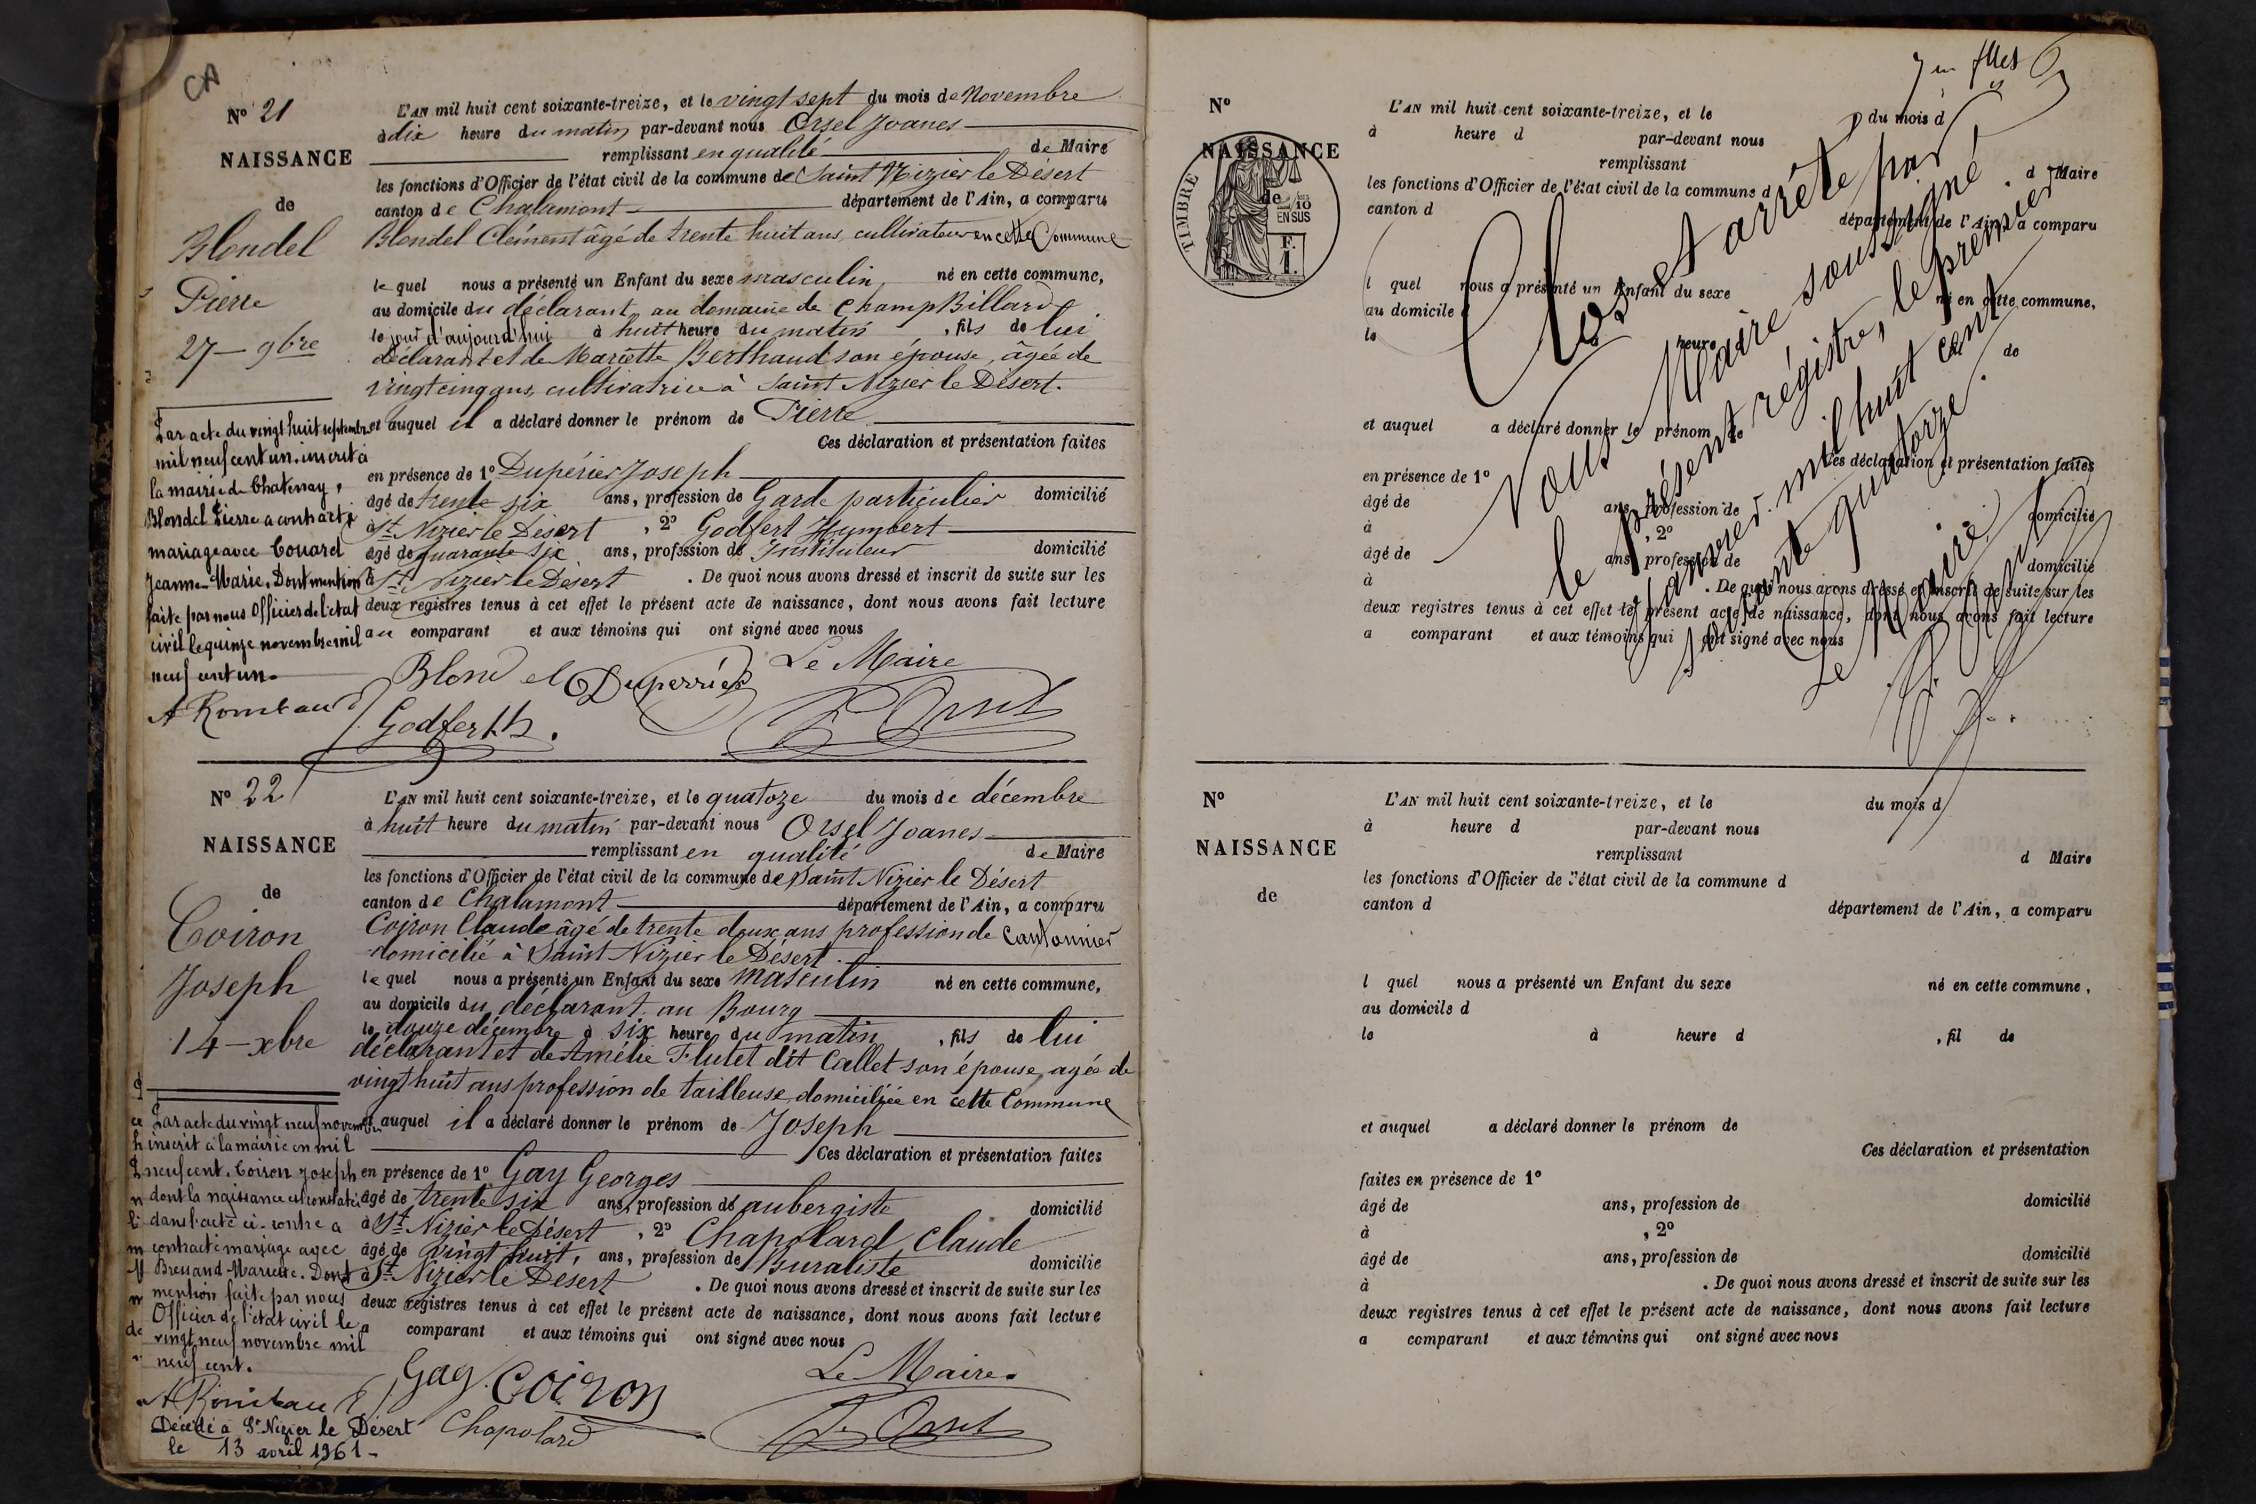 CA
N° 21
NAISSANCE
de
Blondel
Pierre
27 - 9bre
L'AN mil huit cent soixante-treize, et le vingt sept du mois de Novembre
à dix heure du matin par-devant nous Orsel Joanes
remplissant en qualité de Maire
les fonctions d'Officier de l'état civil de la commune de Saint Nizier le Désert
canton de Chalamont département de l'Ain, a comparu
Blondel Clément âgé de trente huit ans, cultivateur en cette Commune
le quel nous a présenté un Enfant du sexe masculin né en cette commune,
au domicile du déclarant au domaine de Champ Billard
le jour d'aujourd'hui à huit heure du matin, fils de lui
déclarant et de Mariette Berthaud son épouse, âgée de
vingt cinq ans, cultivatrice à Saint Nizier le Désert.
et auquel il a déclaré donner le prénom de Pierre
Ces déclaration et présentation faites
en présence de 1° Dupérier Joseph
âgé de trente six ans, profession de Garde particulier domicilié
à St Nizier le Désert, 2° Godfert Humbert
âgé de quarante six ans, profession de Instituteur domicilié
à St Nizier le Désert. De quoi nous avons dressé et inscrit de suite sur les
deux registres tenus à cet effet le présent acte de naissance, dont nous avons fait lecture
au comparant et aux témoins qui ont signé avec nous
Blondel Duperrier Le Maire
Godfert h. J. Orsel
Par acte du vingt huit septembre
mil neuf cent un, inscrit à
la mairie de Chatenay,
Blondel Pierre a contracté
mariage avec Couard
Jeanne-Marie. Dont mention
faite par nous Officier de l'état
civil le quinze novembre mil
neuf cent un.
N° 22
NAISSANCE
de
Coiron
Joseph
14 - xbre
L'AN mil huit cent soixante-treize, et le quatoze du mois de décembre
à huit heure du matin par-devant nous Orsel Joanes
remplissant en qualité de Maire
les fonctions d'Officier de l'état civil de la commune de Saint Nizier le Désert
canton de Chalamont département de l'Ain, a comparu
Coiron Claude âgé de trente deux ans profession de Cantonnier
domicilié à Saint Nizier le Désert.
le quel nous a présenté un Enfant du sexe masculin né en cette commune,
au domicile du déclarant au Bourg
le douze décembre à six heure du matin, fils de lui
déclarant et de Amélie Flutet dit Callet son épouse, agée de
vingt huit ans profession de tailleuse, domiciliée en cette Commune
et auquel il a déclaré donner le prénom de Joseph
Ces déclaration et présentation faites
en présence de 1° Gay Georges
âgé de trente six ans, profession de aubergiste domicilié
à St Nizier le Désert, 2° Chapolard Claude
âgé de vingt huit, ans, profession de Buraliste domicilié
à St Nizier le Désert. De quoi nous avons dressé et inscrit de suite sur les
deux registres tenus à cet effet le présent acte de naissance, dont nous avons fait lecture
a comparant et aux témoins qui ont signé avec nous
Gay Coiron Le Maire
Chapolard J. Orsel
Par acte du vingt neuf novembre
inscrit à la mairie en mil
neuf cent. Coiron Joseph
dont la naissance est constatée
dans l'acte ci-contre a
contracté mariage avec
Bressand Mariette. Dont
mention faite par nous
Officier de l'état civil le
vingt neuf novembre mil
neuf cent.
Décédé à St Nizier le Désert
le 13 avril 1961-
N°
NAISSANCE
de
TIMBRE
2/10
EN SUS
F.
1.
L'AN mil huit cent soixante-treize, et le du mois d
à heure d par-devant nous
remplissant d Maire
les fonctions d'Officier de l'état civil de la commune d
canton d département de l'Ain, a comparu
l quel nous a présenté un Enfant du sexe né en cette commune,
au domicile d
le heure de
et auquel a déclaré donner le prénom de
Ces déclaration et présentation faites
en présence de 1°
âgé de ans, profession de domicilié
à , 2°
âgé de ans, profession de domicilié
à . De quoi nous avons dressé et inscrit de suite sur les
deux registres tenus à cet effet le présent acte de naissance, dont nous avons fait lecture
a comparant et aux témoins qui ont signé avec nous
Clos et arrêté par
Nous Maire soussigné
le présent régistre, le premier
Janvier mil huit cent
soixante quatorze.
Le Maire
N°
NAISSANCE
de
L'AN mil huit cent soixante-treize, et le du mois d
à heure d par-devant nous
remplissant d Maire
les fonctions d'Officier de l'état civil de la commune d
canton d département de l'Ain, a comparu
l quel nous a présenté un Enfant du sexe né en cette commune,
au domicile d
le à heure d , fil de
et auquel a déclaré donner le prénom de
Ces déclaration et présentation
faites en présence de 1°
âgé de ans, profession de domicilié
à , 2°
âgé de ans, profession de domicilié
à . De quoi nous avons dressé et inscrit de suite sur les
deux registres tenus à cet effet le présent acte de naissance, dont nous avons fait lecture
a comparant et aux témoins qui ont signé avec nous